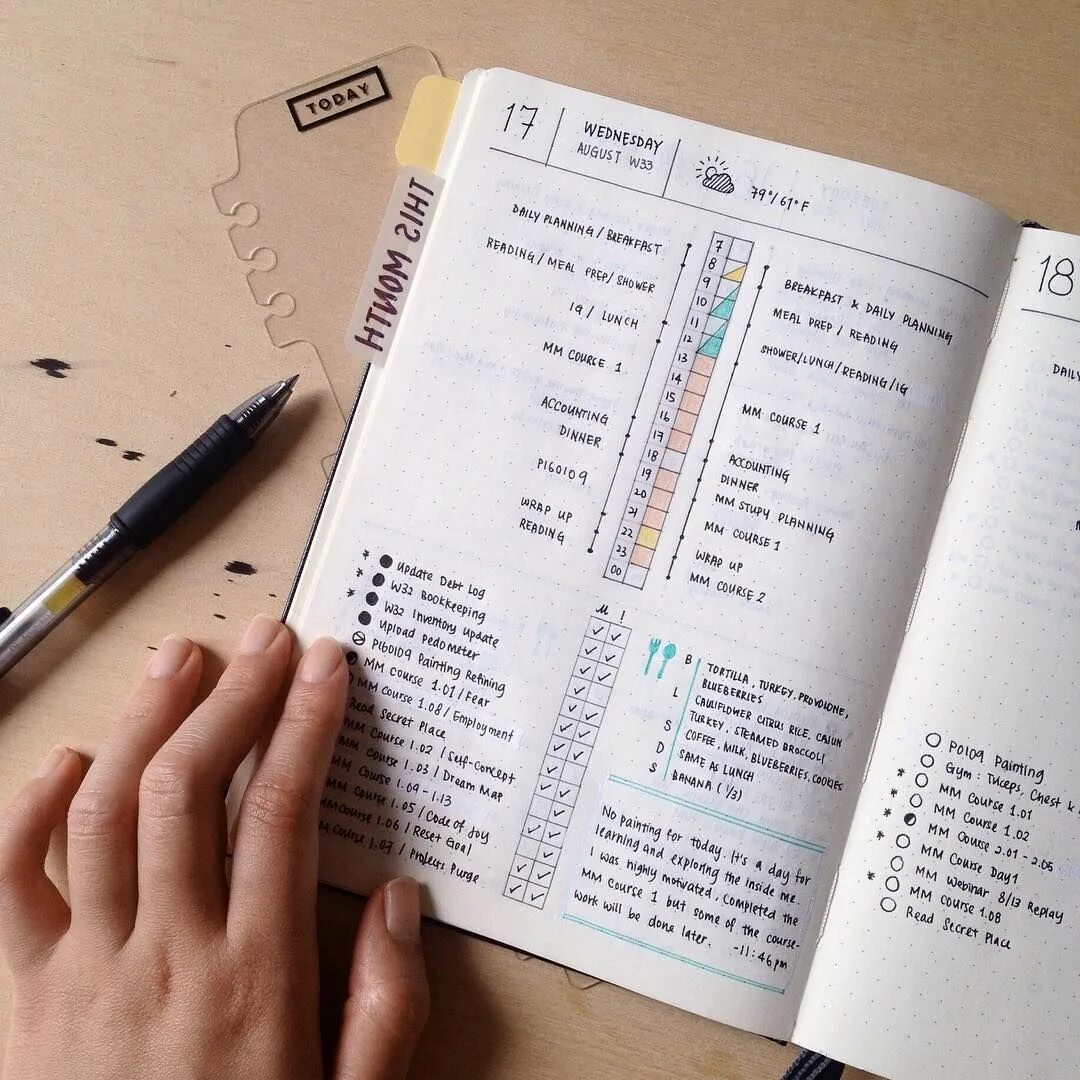 TODAY
THIS MONTH
17
WEDNESDAY
AUGUST W33
79°/61°F
DAILY PLANNING / BREAKFAST
READING / MEAL PREP / SHOWER
IG / LUNCH
MM COURSE 1
ACCOUNTING
DINNER
P160109
WRAP UP
READING
7
8
9
10
11
12
13
14
15
16
17
18
19
20
21
22
23
00
BREAKFAST & DAILY PLANNING
MEAL PREP / READING
SHOWER/LUNCH/READING/IG
MM COURSE 1
ACCOUNTING
DINNER
MM STUDY PLANNING
MM COURSE 1
WRAP UP
MM COURSE 2
Update Debt Log
W32 Bookkeeping
W32 Inventory Update
Upload Pedometer
P160109 Painting Refining
MM Course 1.01 / Fear
MM Course 1.08 / Employment
Read Secret Place
MM Course 1.02 / Self-Concept
MM Course 1.03 / Dream Map
MM Course 1.09 - 1.13
MM Course 1.05 / Code of Joy
MM Course 1.06 / Reset Goal
Course 1.07 / Projects Purge
M !
B TORTILLA, TURKEY, PROVOLONE,
BLUEBERRIES
L CAULIFLOWER CITRUS RICE, CAJUN
TURKEY, STEAMED BROCCOLI
S COFFEE, MILK, BLUEBERRIES, COOKIES
D SAME AS LUNCH
S BANANA (1/3)
No painting for today. It's a day for
learning and exploring the inside me.
I was highly motivated, completed the
MM course 1 but some of the course-
work will be done later. -11:46pm
18
DAILY
P0109 Painting
Gym: Triceps, Chest &
MM Course 1.01
MM Course 1.02
MM Course 2.01 - 2.05
MM Course Day1
MM Webinar 8/13 Replay
MM Course 1.08
Read Secret Place